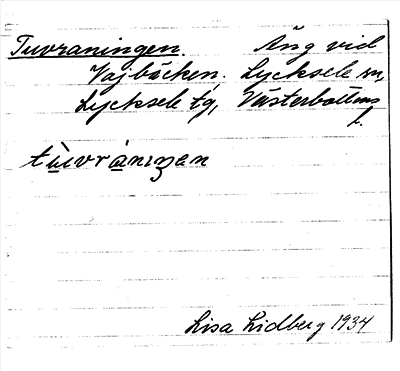 Tuvraningen. Äng vid
Vajbäcken. Lycksele sn,
Lycksele tg, Västerbottens
l.
Lisa Lidberg 1934